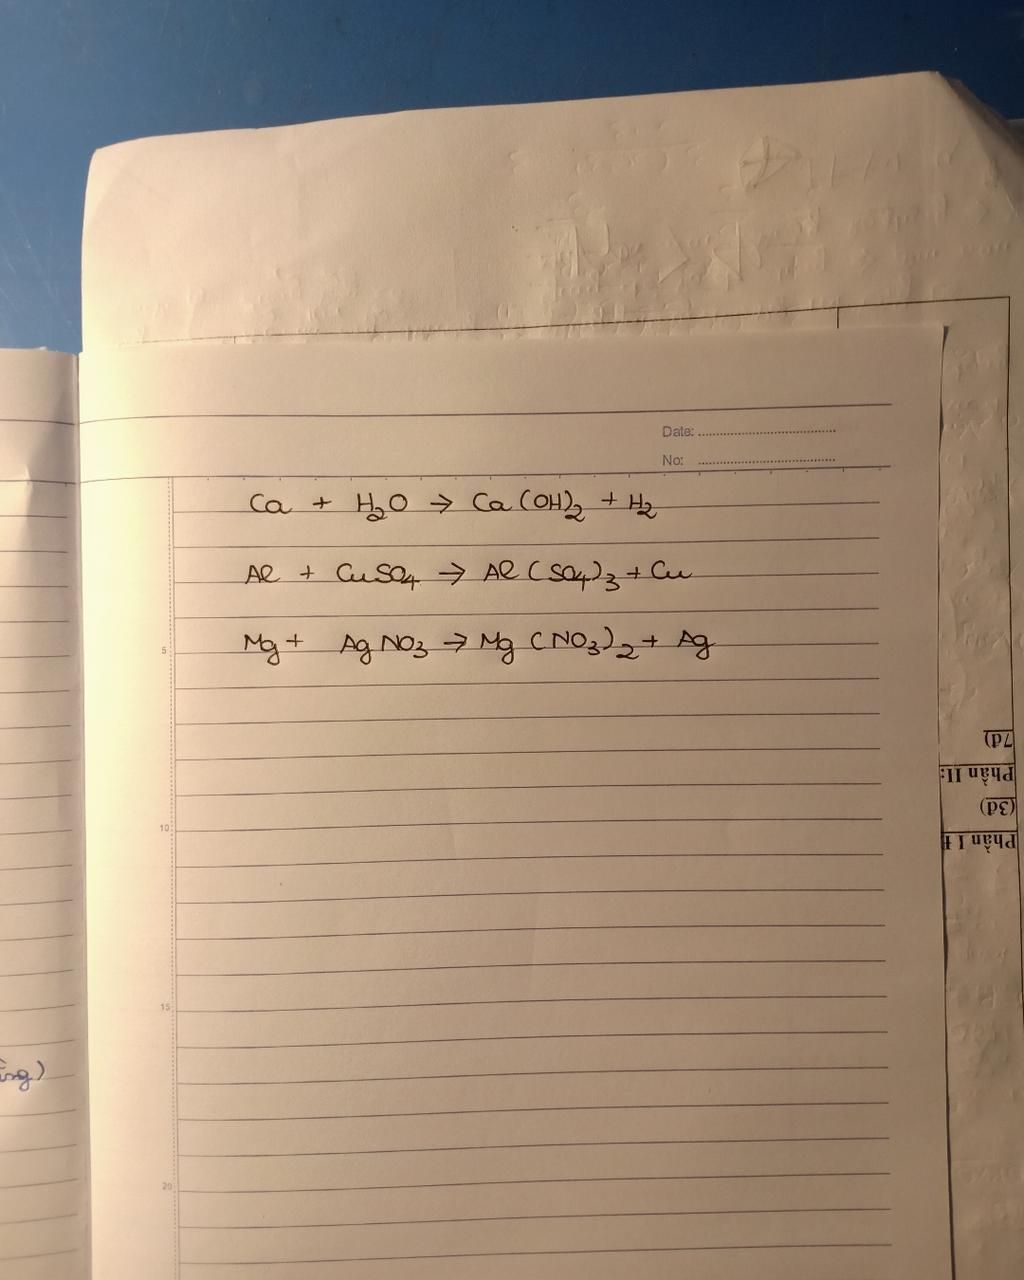 Date: ................................
No: ................................
Ca + H₂O → Ca(OH)₂ + H₂
Al + CuSO₄ → Al(SO₄)₃ + Cu
5
Mg + AgNO₃ → Mg(NO₃)₂ + Ag
10
15
20
7đ)
Phần II:
(3đ)
Phần I